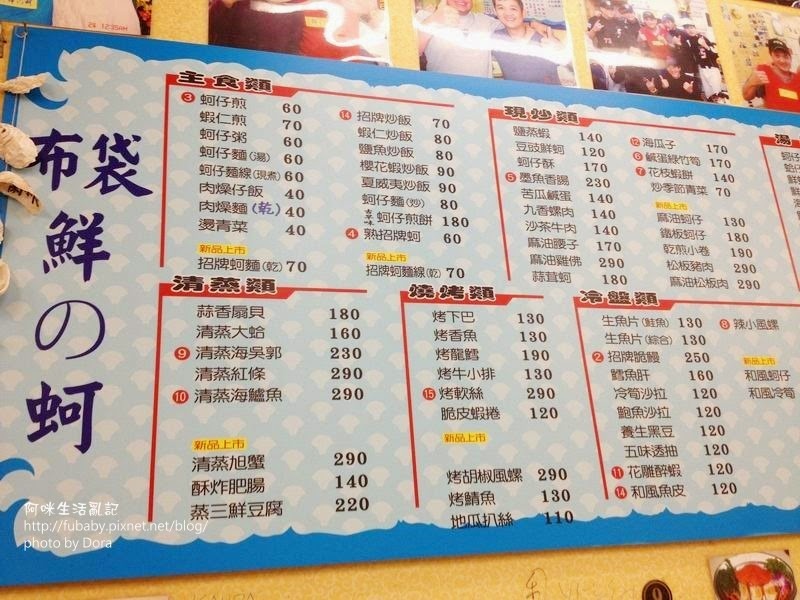 布袋
鮮の蚵
主食類
③ 蚵仔煎 60
蝦仁煎 70
蚵仔粥 60
蚵仔麵(湯) 60
蚵仔麵線(現煮) 60
肉燥仔飯 40
肉燥麵(乾) 40
燙青菜 40
新品上市
招牌蚵麵(乾) 70
⑭ 招牌炒飯 70
蝦仁炒飯 80
鹽魚炒飯 80
櫻花蝦炒飯 90
夏威夷炒飯 90
蚵仔麵(炒) 80
蚵仔煎餅 180
④ 熟招牌蚵 60
新品上市
招牌蚵麵線(乾) 70
現炒類
鹽蒸蝦 140
豆豉鮮蚵 120
蚵仔酥 170
⑤ 墨魚香腸 230
苦瓜鹹蛋 140
九香螺肉 140
沙茶牛肉 140
麻油腰子 170
麻油雞佛 290
蒜茸蚵 180
⑫ 海瓜子 170
⑥ 鹹蛋綠竹筍 170
⑦ 花枝蝦餅 170
炒季節青菜 70
新品上市
麻油蚵仔 130
鐵板蚵仔 180
乾煎小卷 190
松板豬肉 290
麻油松板肉 290
湯
清蒸類
蒜香扇貝 180
清蒸大蛤 160
⑨ 清蒸海吳郭 230
清蒸紅條 290
⑩ 清蒸海鱸魚 290
新品上市
清蒸旭蟹 290
酥炸肥腸 140
蒸三鮮豆腐 220
燒烤類
烤下巴 130
烤香魚 130
烤龍鱈 190
烤牛小排 130
⑮ 烤軟絲 290
脆皮蝦捲 120
新品上市
烤胡椒風螺 290
烤鯖魚 130
地瓜扒絲 110
冷盤類
生魚片(鮭魚) 130
生魚片(綜合) 130
② 招牌脆鰻 250
鱈魚肝 160
冷筍沙拉 120
鮑魚沙拉 120
養生黑豆 120
五味透抽 120
⑪ 花雕醉蝦 120
⑭ 和風魚皮 120
⑧ 辣小風螺
新品上市
和風蚵仔
和風冷筍
阿咪生活亂記
http://fubaby.pixnet.net/blog/
photo by Dora